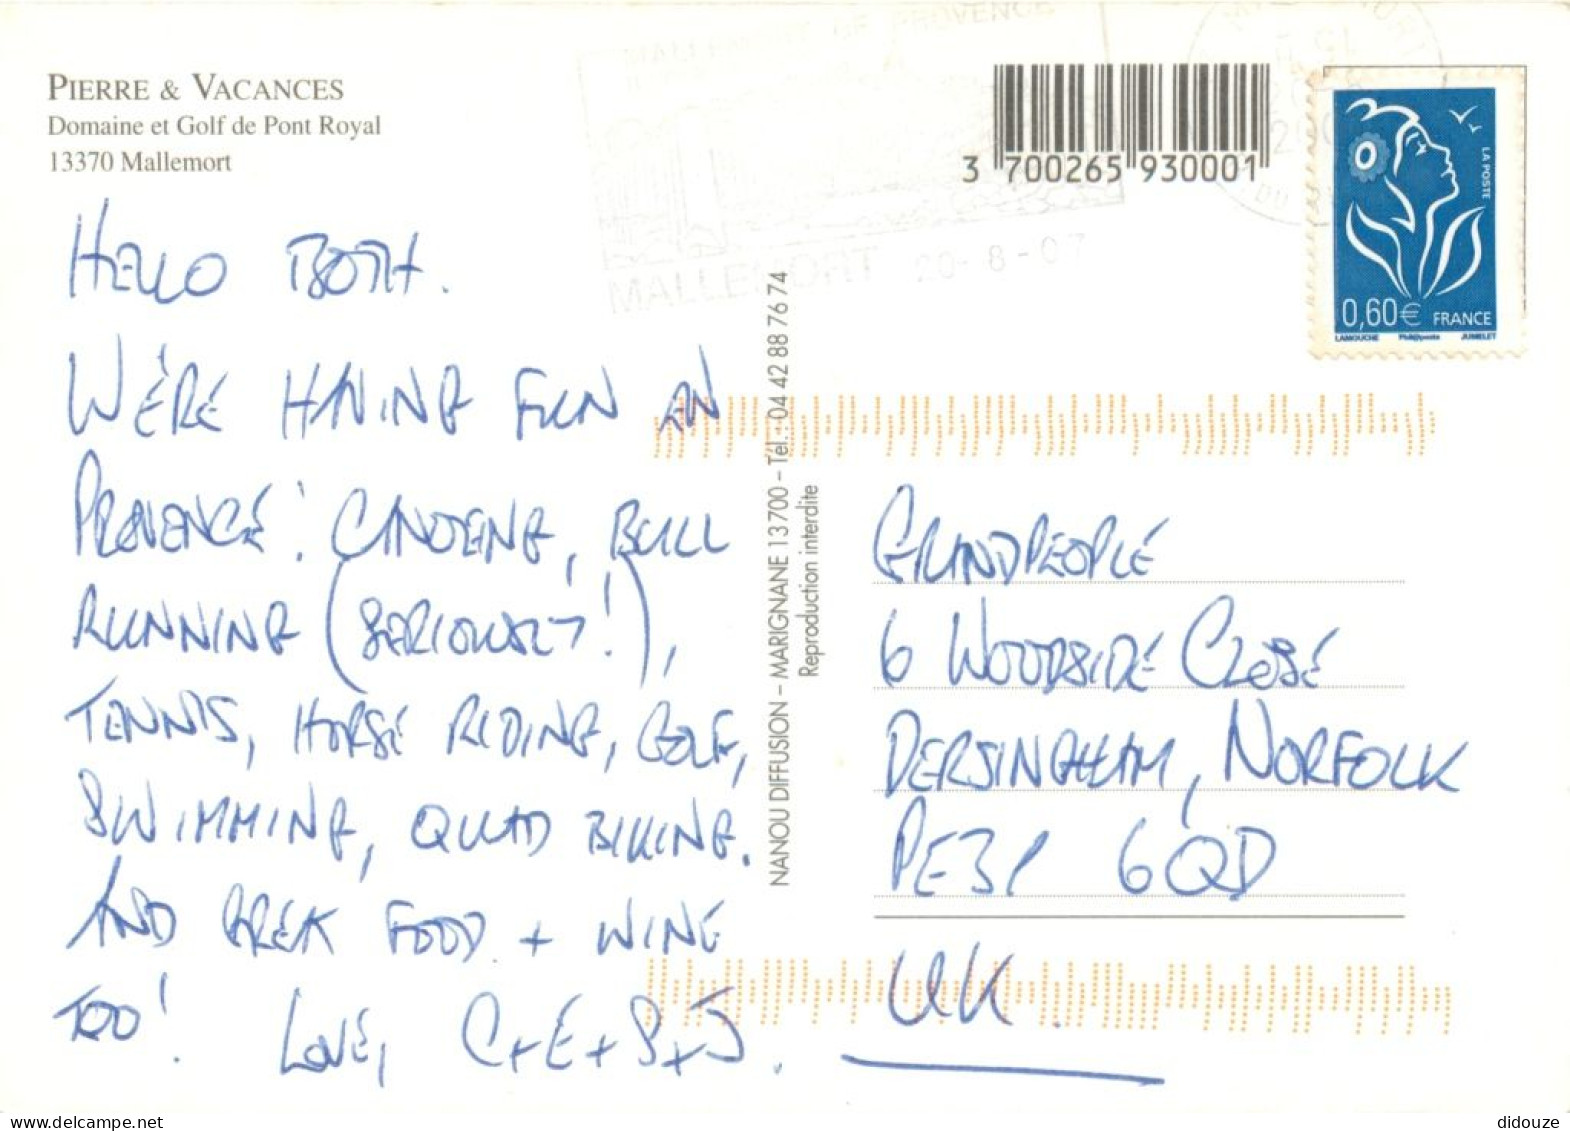 PIERRE & VACANCES
Domaine et Golf de Pont Royal
13370 Mallemort
MALLEMORT DE PROVENCE
MALLEMORT 20-8-07
3 700265 930001
LA POSTE
0,60€ FRANCE
LAMOUCHE Phil@poste JUMELET
HELLO BOTH.
WE'RE HAVING FUN IN
PROVENCE! CANOEING, BULL
RUNNING (SERIOUSLY!),
TENNIS, HORSE RIDING, GOLF,
SWIMMING, QUAD BIKING.
AND GREAT FOOD + WINE
TOO! LOVE, C+E+S+J.
NANOU DIFFUSION – MARIGNANE 13700 – Tel. : 04 42 88 76 74
Reproduction interdite
GRANDPEOPLE
6 WOODSIDE CLOSE
DERSINGHAM, NORFOLK
PE31 6QD
UK.
didouze